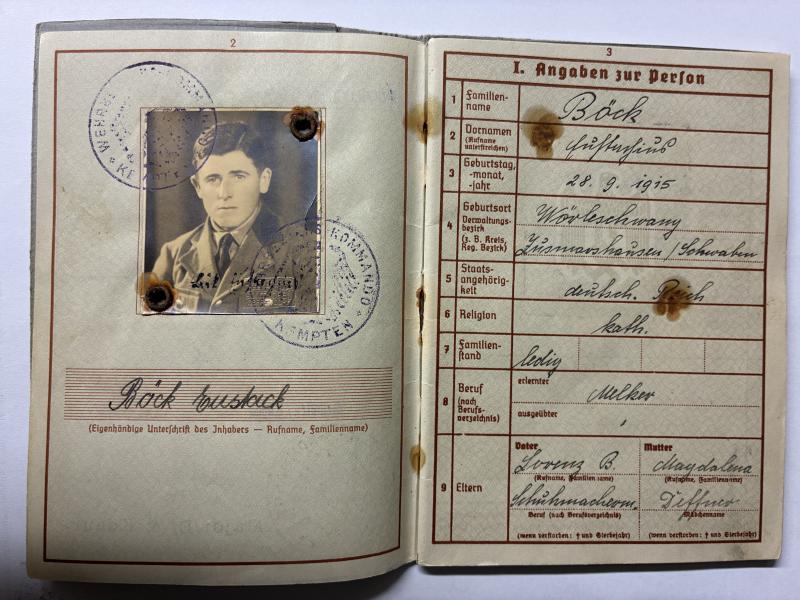 2
WEHRBE
KOMMANDO
KEMPTEN
Böck Eustach
(Eigenhändige Unterschrift des Inhabers — Rufname, Familienname)
3
I. Angaben zur Person
1 Familienname Böck
2 Vornamen (Rufname unterstreichen) Eustachius
3 Geburtstag, -monat, -jahr 28. 9. 1915
4 Geburtsort Wörleschwang
Verwaltungsbezirk (z. B. Kreis, Reg. Bezirk) Zusmarshausen / Schwaben
5 Staatsangehörigkeit deutsch. Reich
6 Religion kath.
7 Familienstand ledig
8 Beruf (nach Berufsverzeichnis) erlernter Melker
ausgeübter
9 Eltern
Vater Mutter
Lorenz B. Magdalena
(Rufname, Familienname) (Rufname, Familienname)
Schuhmacherm. Deffner
Beruf (nach Berufsverzeichnis) Mädchenname
(wenn verstorben: † und Sterbejahr) (wenn verstorben: † und Sterbejahr)